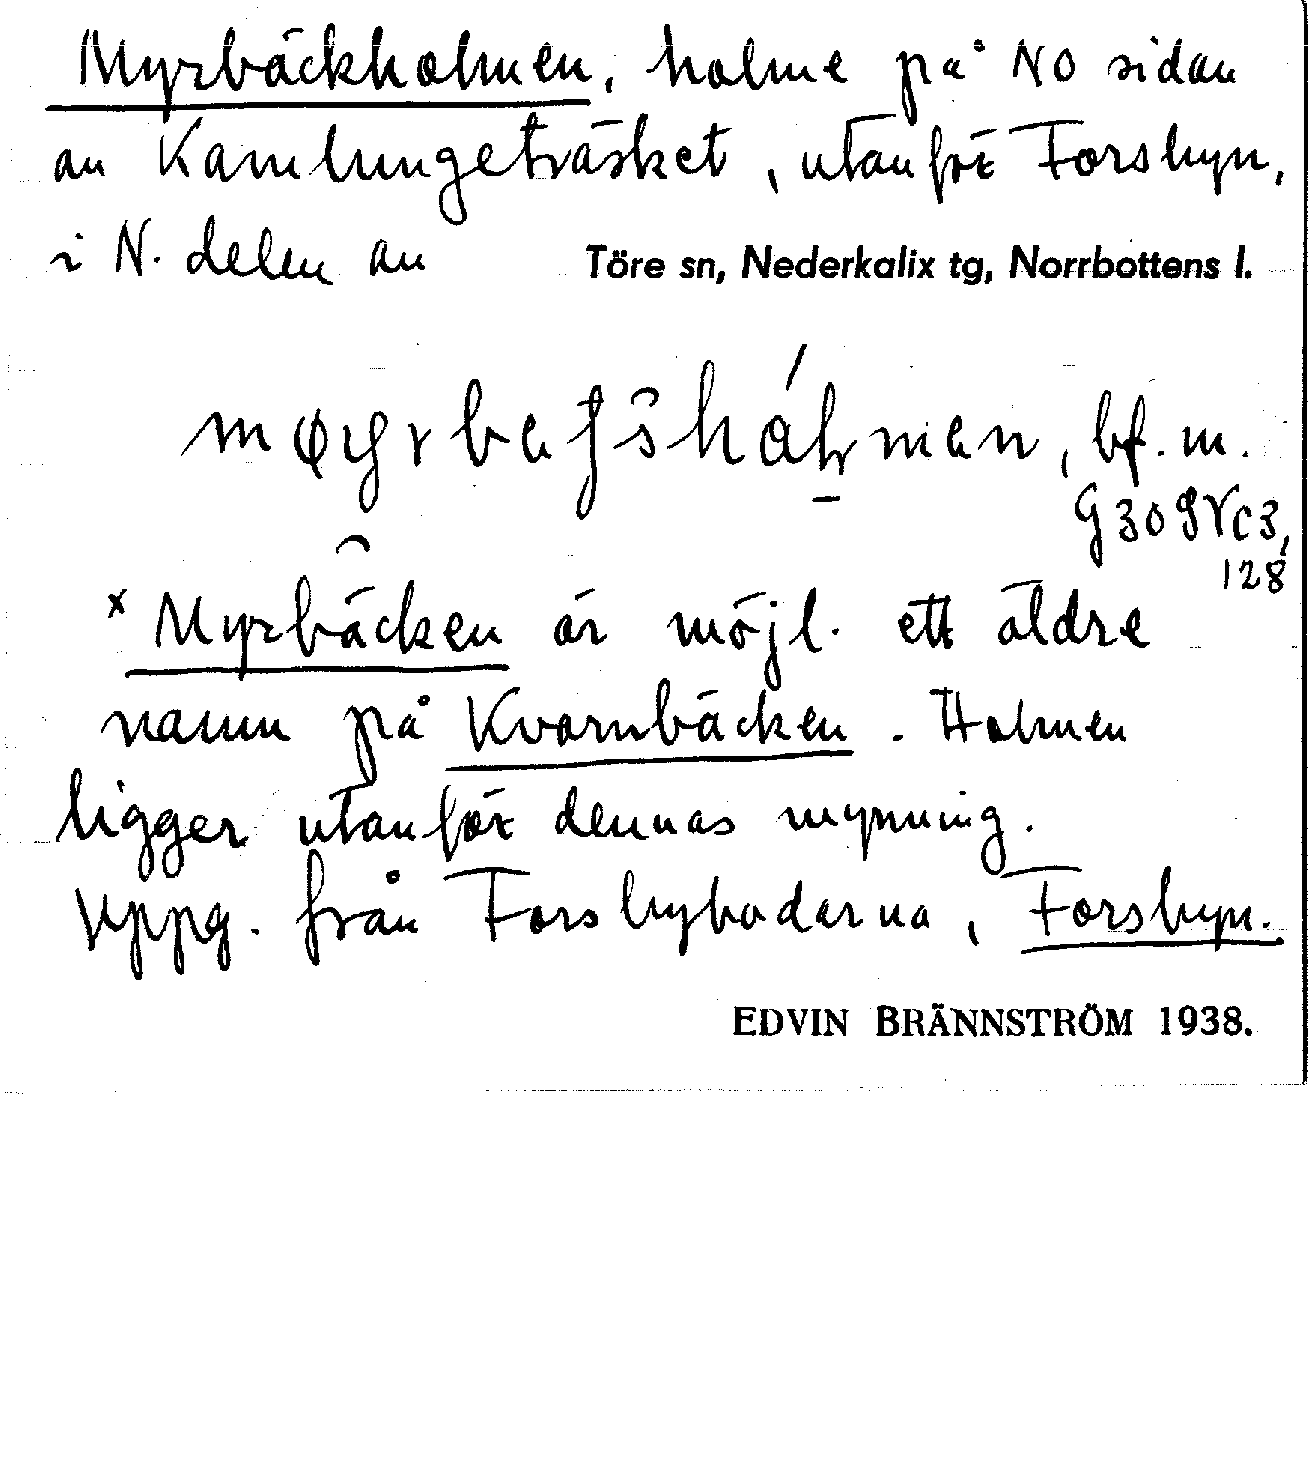 Myrbäckholmen, holme på NO sidan
av Kamlungeträsket, utanför Forsbyn,
i N. delen av Töre sn, Nederkalix tg, Norrbottens l.
bf. m.
128
x Myrbäcken är möjl. ett äldre
namn på Kvarnbäcken. Holmen
ligger utanför dennas mynning.
Uppg. från Forsbybodarna, Forsbyn.
EDVIN BRÄNNSTRÖM 1938.